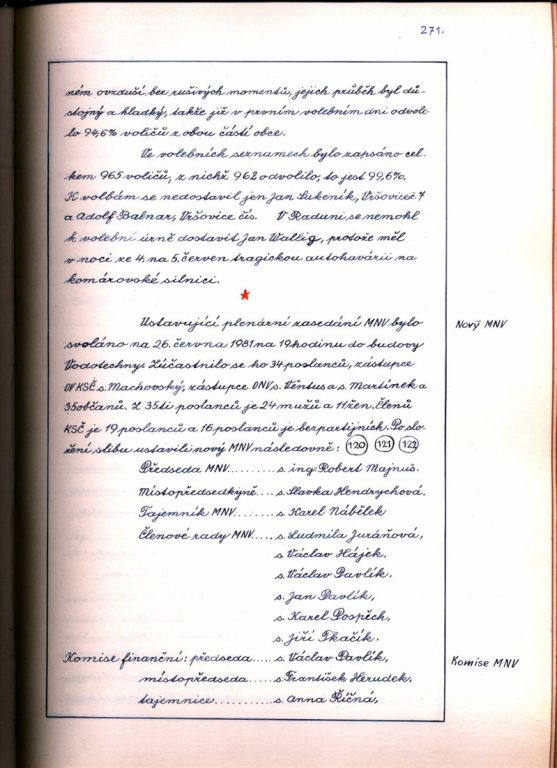 271.
ném ovzduší bez rušivých momentů, jejich průběh byl dů-
stojný a kladký, takže již v prvním volebním dni odvoli-
lo 94,6% voličů z obou částí obce.
Ve volebních seznamech bylo zapsáno cel-
kem 965 voličů, z nichž 962 odvolilo, to jest 99,6%.
K volbám se nedostavil jen Jan Lukeník, Vršovice č. 7
a Adolf Balnar, Vršovice čís. V Raduni se nemohl
k volební urně dostavit Jan Wallig, protože měl
v noci ze 4. na 5. červen tragickou autohavárii na
komárovské silnici.
Ustavující plenární zasedání MNV bylo
Nový MNV
svoláno na 26. června 1981 na 19 hodinu do budovy
Vodotechny. Zúčastnilo se ho 34 poslanců, zástupce
OV KSČ s. Machovský, zástupce ONV s. Věntus a s. Martínek a
35 občanů. Z 35ti poslanců je 24 mužů a 11 žen. Členů
KSČ je 19 poslanců a 16 poslanců je bezpartijních. Po slo-
žení slibu ustavili nový MNV následovně: 120 121 122
Předseda MNV......... s. ing. Robert Majnuš.
Místopředsedkyně.... s. Slavka Hendrychová.
Tajemník MNV....... s. Karel Nábělek
Členové rady MNV..... s. Ludmila Juráňová,
s. Václav Hájek,
s. Václav Pavlík,
s. Jan Pavlík,
s. Karel Pospěch,
s. Jiří Tkačík.
Komise finanční: předseda..... s. Václav Pavlík,
Komise MNV
místopředseda...... s. František Herudek,
tajemnice...... s. Anna Říčná,